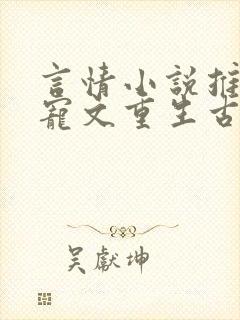 言情小說推
寵文重生古
吴獻坤